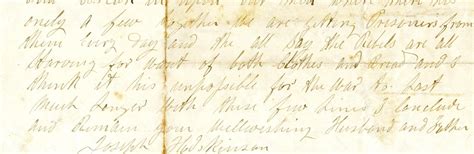 only a few together We are getting Prisoners from
them Evry day and the all say the Rebels are all
Starving for want of both Clothes and Bread and I
think it his unpossible for the War to Last
Much Longer With these few Lines I Conclude
and Remain your Wellwishing Husband and Father
Joseph Hodskinson